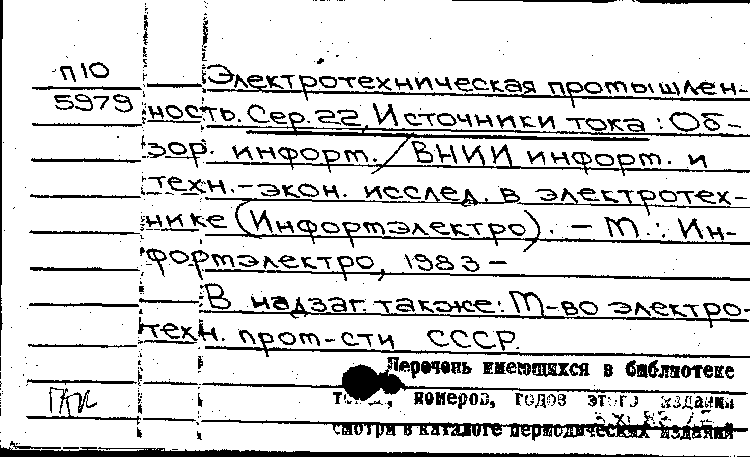 П10
5979
Электротехническая промышлен-
ность. Сер. 22, Источники тока : Об-
зор. информ. / ВНИИ информ. и
техн.-экон. исслед. в электротех-
нике (Информэлектро). - М. : Ин-
формэлектро, 1983 -
В надзаг. также: М-во электро-
техн. пром-сти СССР.
Перечень имеющихся в библиотеке
номеров, годов этого издания
смотри в каталоге периодических изданий